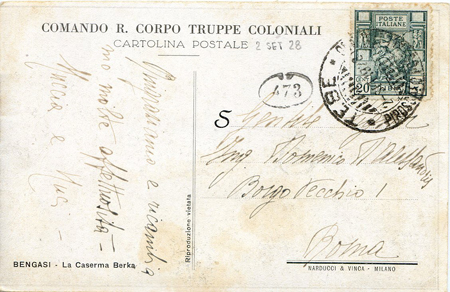 COMANDO R. CORPO TRUPPE COLONIALI
CARTOLINA POSTALE
2 SET 28
POSTE ITALIANE
20
473
TEBE
PIROS
Ringraziamo e ricambia
mo molte affettuosità
Lucia e
S
Ing. Domenico
Borgo Vecchio 1
Roma
Riproduzione vietata
BENGASI - La Caserma Berka
NARDUCCI & VINCA - MILANO